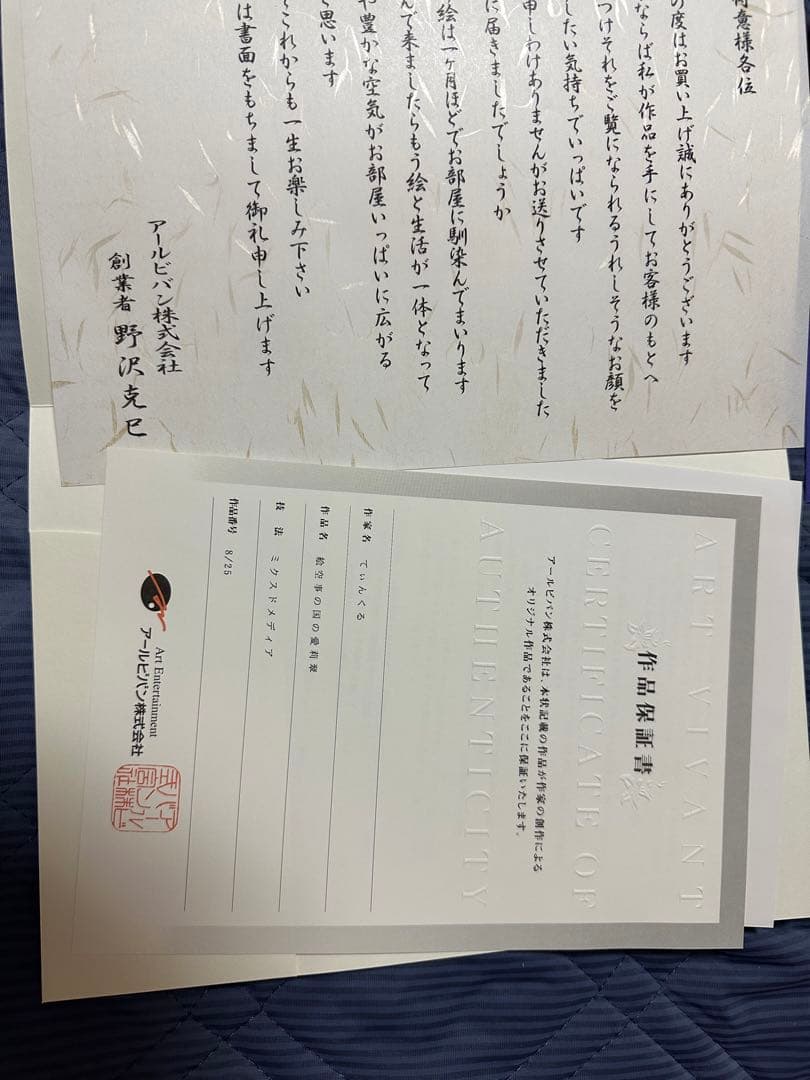 得意様各位
の度はお買い上げ誠にありがとうございます
ならば私が作品を手にしてお客様のもとへ
つけそれをご覧になられるうれしそうなお顔を
したい気持ちでいっぱいです
申しわけありませんがお送りさせていただきました
に届きましたでしょうか
絵は一ヶ月ほどでお部屋に馴染んでまいります
んで来ましたらもう絵と生活が一体となって
や豊かな空気がお部屋いっぱいに広がる
と思います
これからも一生お楽しみ下さい
は書面をもちまして御礼申し上げます
アールビバン株式会社
創業者 野沢克巳
ART VIVANT
CERTIFICATE OF
AUTHENTICITY
作品保証書
アールビバン株式会社は、本状記載の作品が作家の創作による
オリジナル作品であることをここに保証いたします。
作家名 てぃんくる
作品名 絵空事の国の愛莉翠
技法 ミクスドメディア
作品番号 8/25
Art Entertainment
アールビバン株式会社